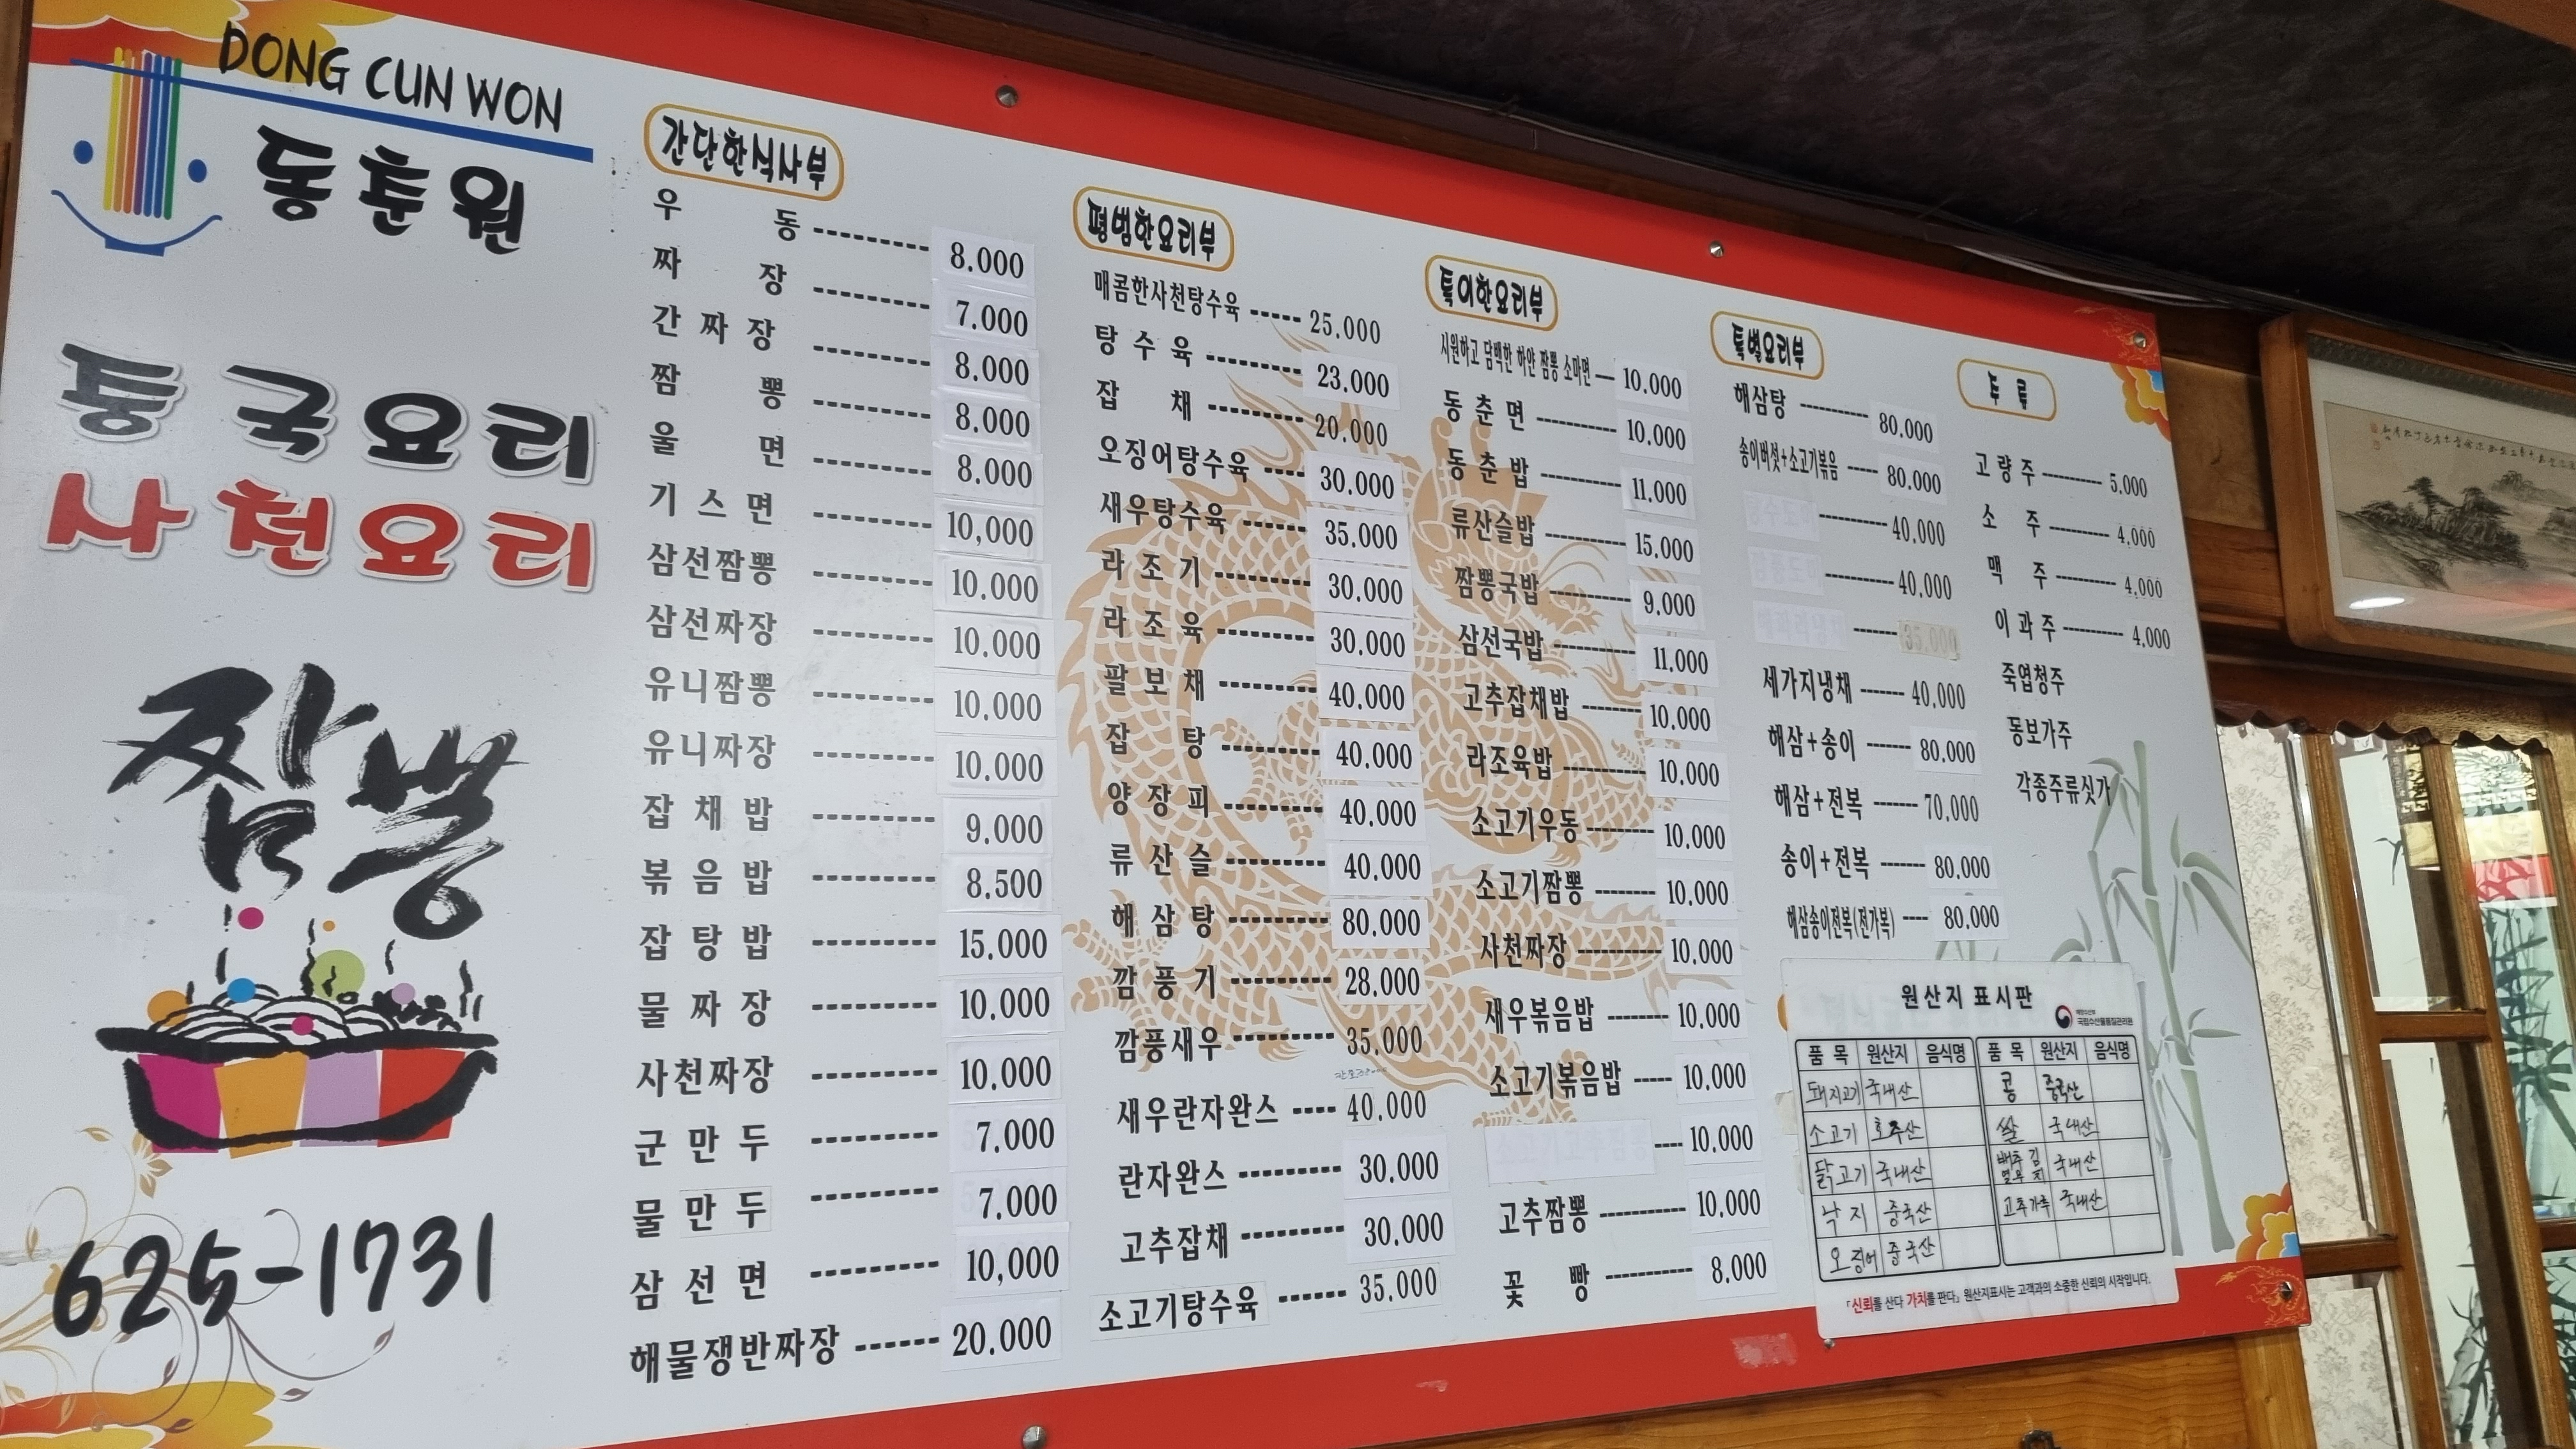 DONG CUN WON
동춘원
중국요리
사천요리
짬뽕
625-1731
간단한식사부
우동 8.000
짜장 7.000
간짜장 8.000
짬뽕 8.000
울면 8.000
기스면 10,000
삼선짬뽕 10.000
삼선짜장 10.000
유니짬뽕 10.000
유니짜장 10.000
잡채밥 9.000
볶음밥 8.500
잡탕밥 15.000
물짜장 10.000
사천짜장 10.000
군만두 7.000
물만두 7.000
삼선면 10,000
해물쟁반짜장 20.000
평범한요리부
매콤한사천탕수육 25.000
탕수육 23.000
잡채 20.000
오징어탕수육 30.000
새우탕수육 35.000
라조기 30.000
라조육 30.000
팔보채 40.000
잡탕 40.000
양장피 40.000
류산슬 40.000
해삼탕 80.000
깜풍기 28.000
깜풍새우 35.000
새우란자완스 40.000
란자완스 30.000
고추잡채 30.000
소고기탕수육 35.000
특이한요리부
시원하고 담백한 하얀 짬뽕 소마면 10.000
동춘면 10.000
동춘밥 11.000
류산슬밥 15.000
짬뽕국밥 9.000
삼선국밥 11.000
고추잡채밥 10.000
라조육밥 10.000
소고기우동 10.000
소고기짬뽕 10.000
사천짜장 10.000
새우볶음밥 10.000
소고기볶음밥 10.000
소고기고추짬뽕 10.000
고추짬뽕 10.000
꽃빵 8.000
특별요리부
해삼탕 80.000
송이버섯+소고기볶음 80.000
40,000
40,000
35.000
세가지냉채 40,000
해삼+송이 80,000
해삼+전복 70,000
송이+전복 80,000
해삼송이전복(전가복) 80,000
주류
고량주 5,000
소주 4,000
맥주 4,000
이과주 4,000
죽엽청주
동보가주
각종주류싯가
원산지 표시판
국립수산물품질관리원
품목 원산지 음식명 품목 원산지 음식명
돼지고기 국내산 콩 중국산
소고기 호주산 쌀 국내산
닭고기 국내산 배추김치 국내산
낙지 중국산 고추가루 국내산
오징어 중국산
「신뢰를 산다 가치를 판다」 원산지표시는 고객과의 소중한 신뢰의 시작입니다.